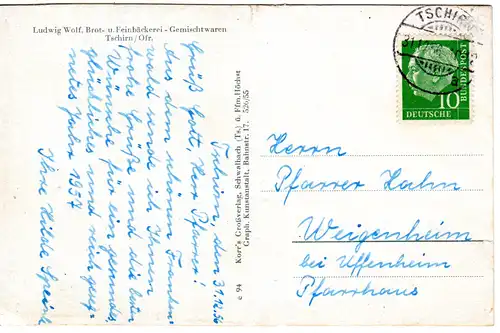 Ludwig Wolf, Brot- u. Feinbäckerei - Gemischtwaren
Tschirn/Ofr.
Tschirn, den 31.12.56
Grüß Gott, Herr Pfarrer!
Aus dem schönen Franken-
wald sende ich Ihnen
frohe Grüße und die besten
Wünsche für ein gesundes,
glückliches und reich geseg-
netes Jahr 1957
Ihre Hilde
Korr's Großverlag, Schwalbach (Ts.) ü. Ffm.Höchst
Graph. Kunstanstalt, Bahnstr. 17. 526/55
c 94
TSCHIRN
10
DEUTSCHE
BUNDESPOST
Herrn
Pfarrer Hahn
Weigenheim
bei Uffenheim
Pfarrhaus